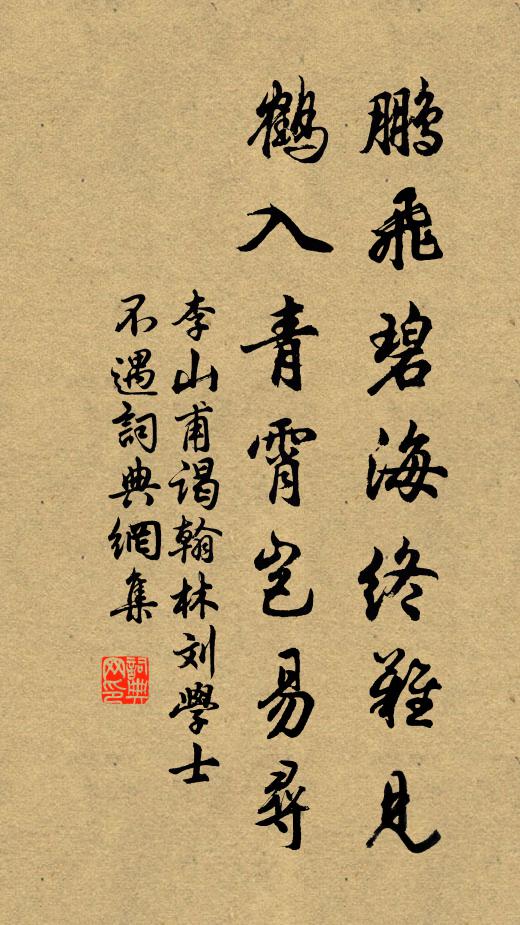 鵬飛碧海終難見
鶴入青霄豈易尋
李山甫謁翰林刘學士
不遇詞典網集
詞典网印